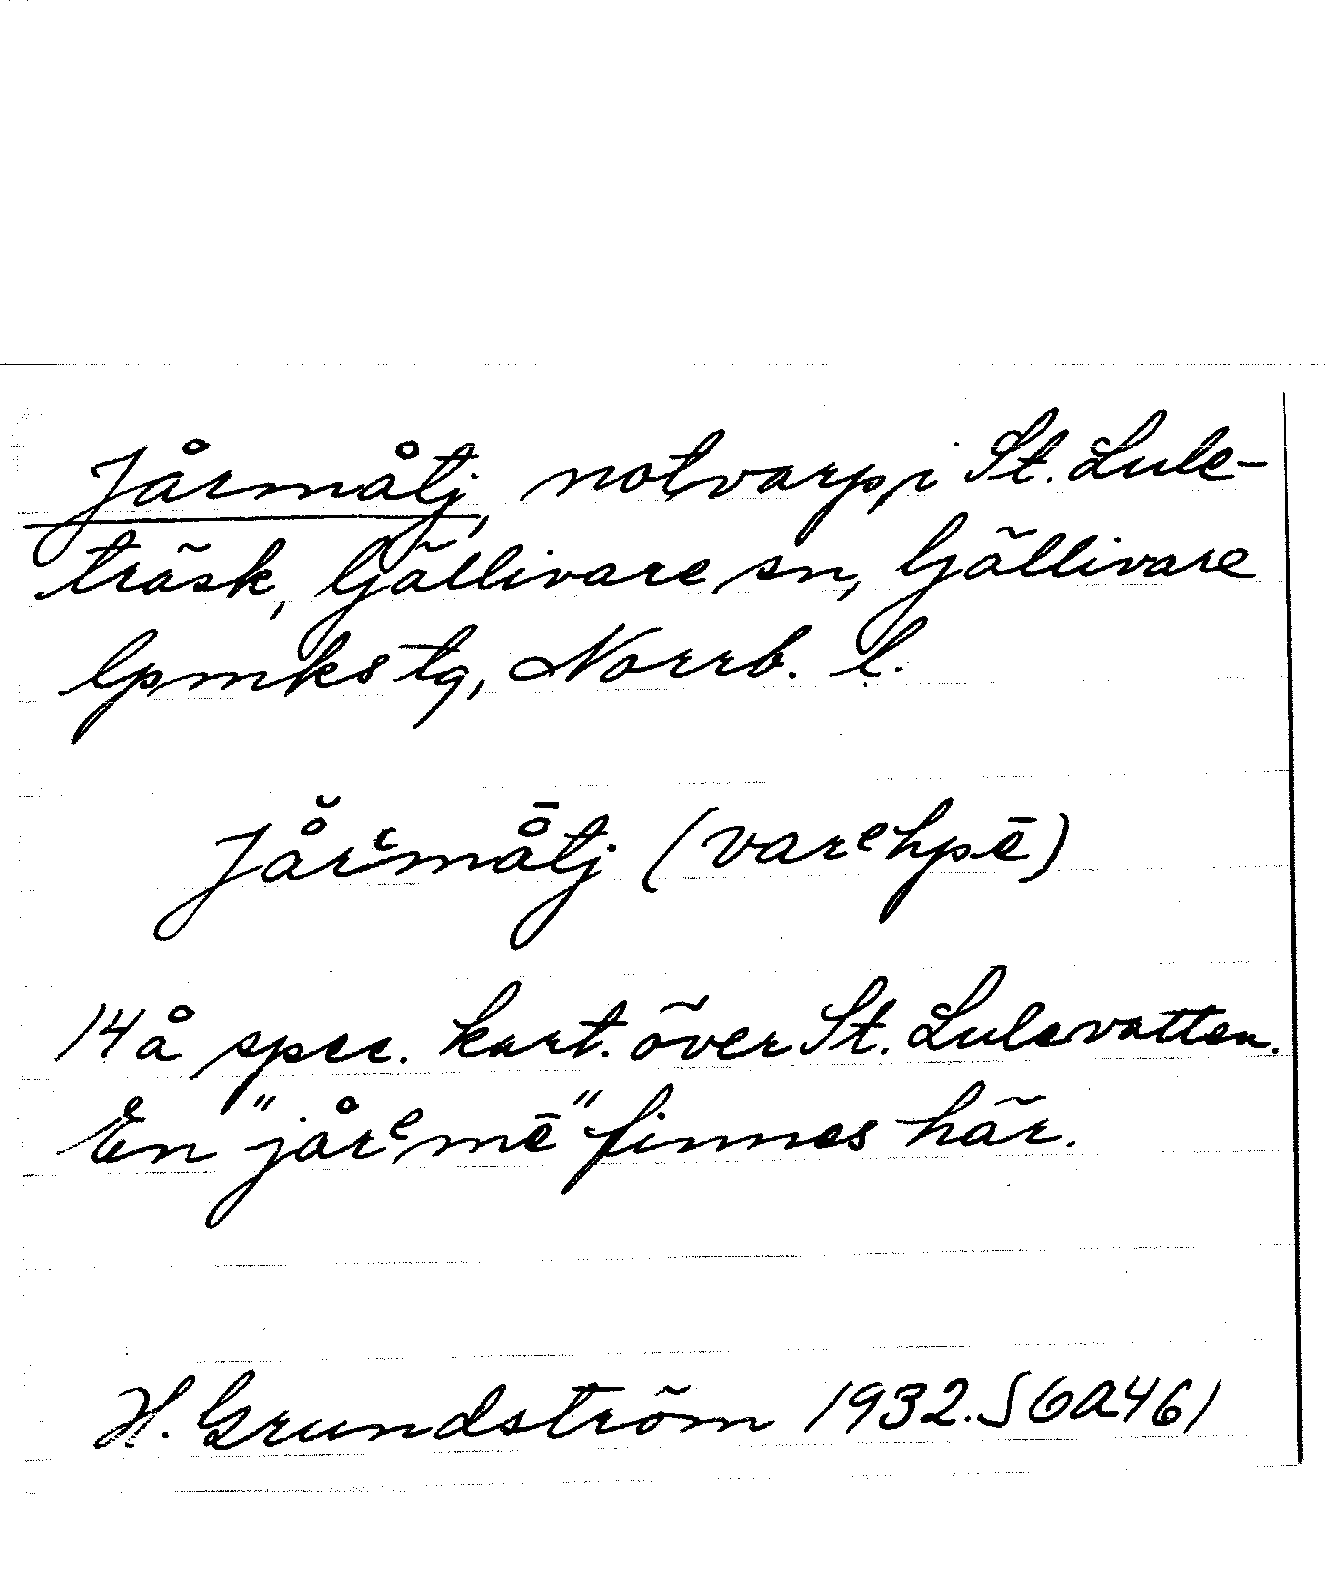 Jårmåtj, notvarp, i St. Lule-
träsk, Gällivare sn, Gällivare
lpmks tg, Norrb. l.
Jå̆rᵉmå̄tj (varᵉhpē)
14 å spec. kart. över St. Lulevatten.
En "jårᵉmē" finnes här.
H. Grundström 1932. S 6A461